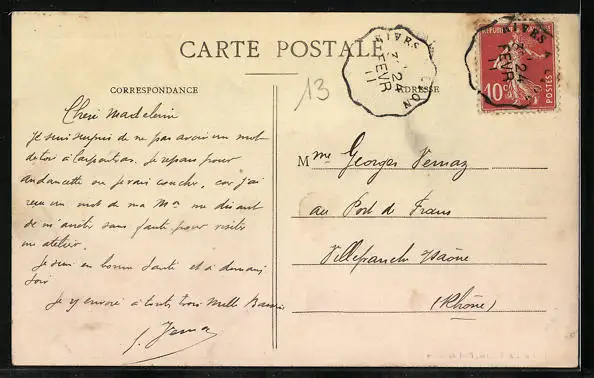 CARTE POSTALE
CORRESPONDANCE
ADRESSE
13
Chère Madeleine
Je suis surpris de ne pas avoir un mot
de toi à Carpentras. Je repars pour
Andancette ou je vais coucher, car j'ai
reçu un mot de ma M me disant
de m'arrêter sans faute pour visiter
un atelier.
Je suis en bonne santé et à demain
soir
Je vous envoie à toutes trois Mille Baisers
Mme Georges Vernaz
au Port de Frans
Villefranche s/Saône
(Rhône)
24
FEVR
11
10c
POSTES
24
FEVR